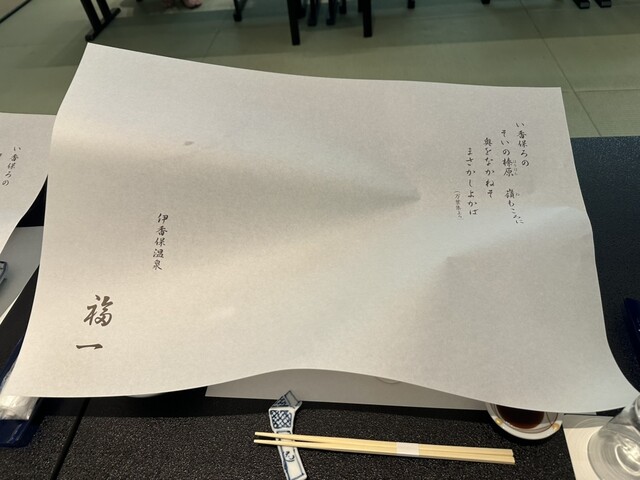 い香保ろの
そいの榛原　嶺もころに
奥をなかねそ
まさかしよかば
(万葉集より)
伊香保温泉
福一
い香保ろの